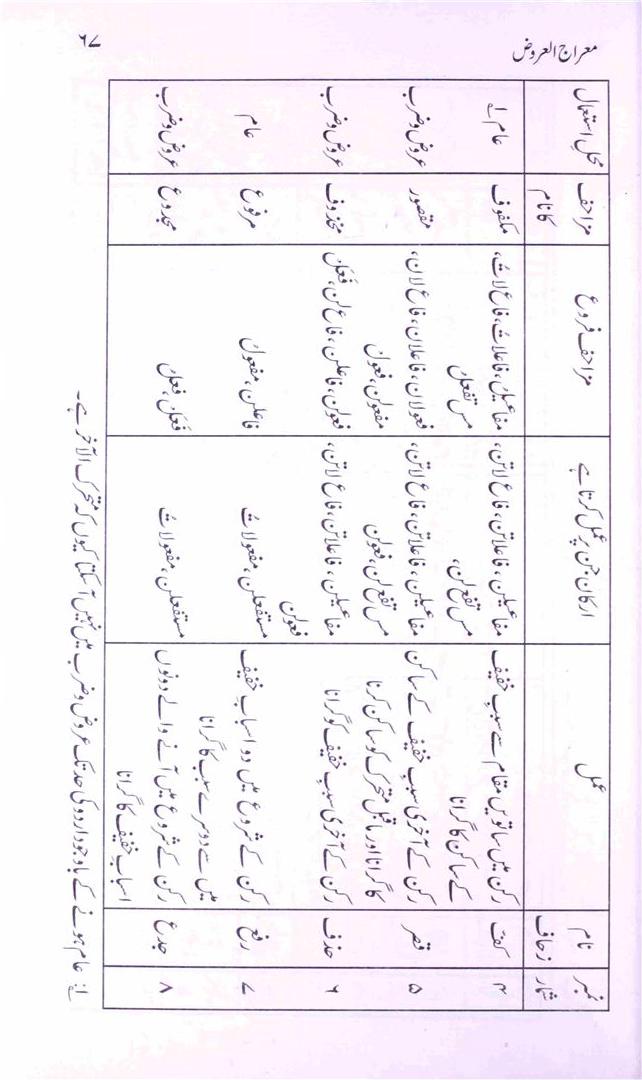 معراج العروض
۶۷
نمبر شمار | نام زحاف | عمل | ارکان جن پر عمل کرتا ہے | مزاحف فروع | مزاحف کا نام | محلِ استعمال
۴ | کفّ | رکن میں ساتویں مقام سے سببِ خفیف کے ساکن کا گرانا | مفاعیلن، فاعلاتن، فاع لاتن، مس تفع لن، | مفاعیلُ، فاعلاتُ، فاع لاتُ، مس تفعلُ | مکفوف | عام ۱؎
۵ | قصر | رکن کے آخری سببِ خفیف کے ساکن کا گرانا اور ماقبل متحرک کو ساکن کرنا | مفاعیلن، فاعلاتن، فاع لاتن، مس تفع لن، فعولن | فعولان، فاعلان، فاع لان، مفعولن، فعول | مقصور | عروض و ضرب
۶ | حذف | رکن کے آخری سببِ خفیف کو گرانا | مفاعیلن، فاعلاتن، فاع لاتن، فعولن | فعولن، فاعلن، فاع لن، فَعَل | محذوف | عروض و ضرب
۷ | رفع | رکن کے شروع میں دو اسبابِ خفیف میں سے دوسرے سبب کا گرانا | مستفعلن، مفعولاتُ | فاعلن، مفعولُ | مرفوع | عام
۸ | جدع | رکن کے شروع میں آنے والے دونوں اسبابِ خفیف کا گرانا | مستفعلن، مفعولاتُ | فَعَل، فعلُ | مجدوع | عروض و ضرب
۱؎: عام ہونے کے باوجود اردو کی حد تک عروض و ضرب میں نہیں آ سکتا کیوں کہ متحرک الآخر ہے۔